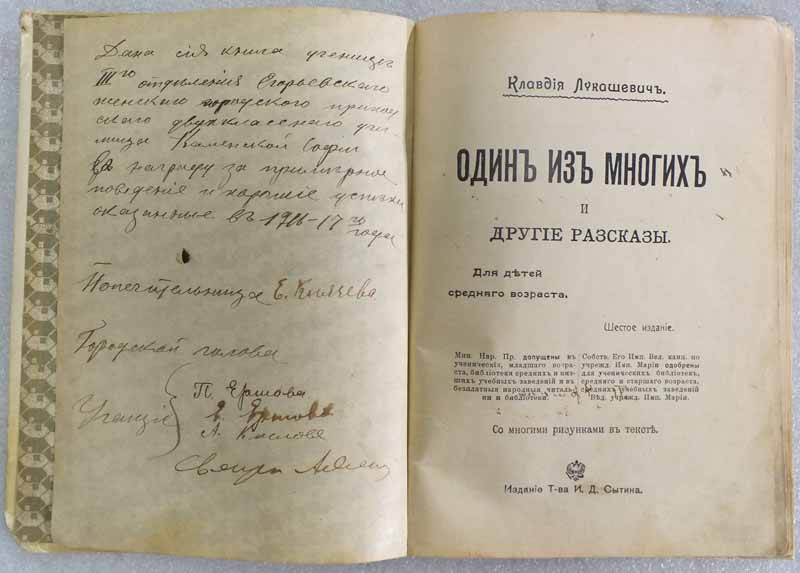 Дана сія книга ученицѣ
IIIго отдѣленія Егорьевскаго
женскаго городского приход
скаго двухкласснаго учи-
лища Каменской Софіи
въ награду за примѣрное
поведеніе и хорошіе успѣхи
оказанные въ 1916-17го
года
Попечительница Е. Князева
Городской голова
Учащіе
П. Ершова
Е. Ершова
А. Кислова
Клавдія Лукашевичъ.
ОДИНЪ ИЗЪ МНОГИХЪ
И
ДРУГІЕ РАЗСКАЗЫ.
Для дѣтей
средняго возраста.
Шестое изданіе.
Мин. Нар. Пр. допущены въ
ученическія, младшаго возра-
ста, библіотеки среднихъ и низ-
шихъ учебныхъ заведеній и въ
безплатныя народныя читаль-
ни и библіотеки.
Собств. Его Имп. Вел. канц. по
учрежд. Имп. Маріи одобрены
для ученическихъ библіотекъ,
средняго и старшаго возраста,
среднихъ учебныхъ заведеній
Вѣд. учрежд. Имп. Маріи.
Со многими рисунками въ текстѣ.
Изданіе Т-ва И. Д. Сытина.